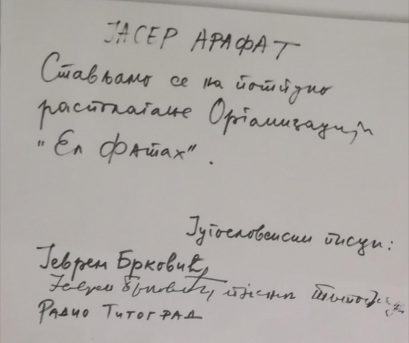 ЈАСЕР АРАФАТ
Стављамо се на потпуно
располагање Организацији
"Ел Фатах".
Југословенски писци:
Јеврем Брковић,
Јеврем Брковић,
РАДИО ТИТОГРАД